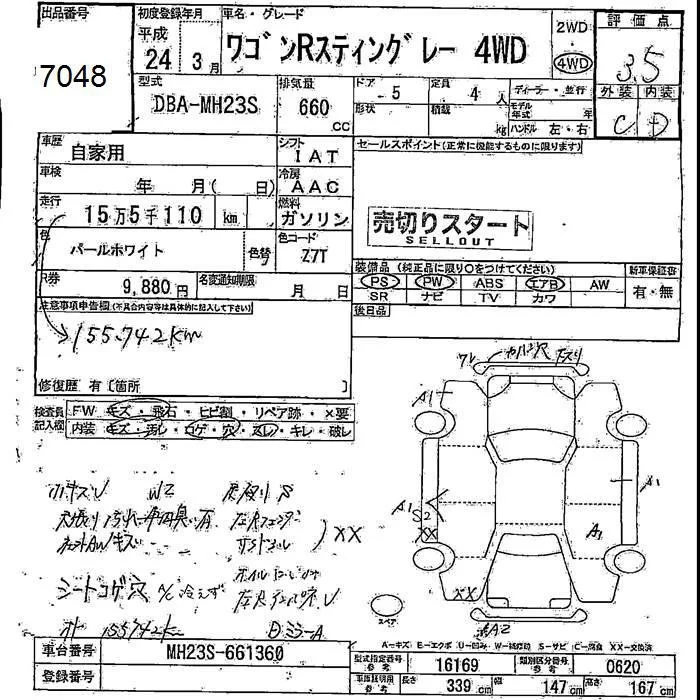 出品番号
7048
初度登録年月
平成
24年 3月
車名・グレード
ワゴンRスティングレー 4WD
2WD
4WD
評価点
3.5
外装 内装
C D
型式
DBA-MH23S
排気量
660
CC
ドア
5
形状
定員
4 人
積載
kg
ディーラー・並行
モデル年式 年
ハンドル 左・右
車歴
自家用
シフト
IAT
車検
年 月( 日)
冷房
AAC
走行
15万5千110 km
燃料
ガソリン
色
パールホワイト
色替
色コード
Z7T
R券
9,880円
名変通知期限
月 日
セールスポイント(正常に機能するものに限ります)
売切りスタート
SELLOUT
装備品 (純正品に限り○をつけてください)
PS PW ABS エアB AW
SR ナビ TV カワ
新車保証書
有・無
後日品
注意事項申告欄(不具合内容等は具体的に記入して下さい)
155.742km
修復歴 有〔箇所 〕
検査員記入欄
FW キズ・飛石・ヒビ割・リペア跡・×要
内装 キズ・汚レ・コゲ・穴・スレ・キレ・破レ
小キズU W2
XX
シートコゲ穴 A/C冷えず
155742k
ワレ
A1
A1
A1
S2
XX
A1
XX
A2
スペア
A=キズ E=エクボ U=凹み W=補修跡 S=サビ C=腐食 XX=交換済
車台番号
MH23S-661360
登録番号
型式指定番号 参考
16169
類別区分番号 参考
0620
車検証明用 参考
長さ 339 cm
幅 147 cm
高さ 167 cm